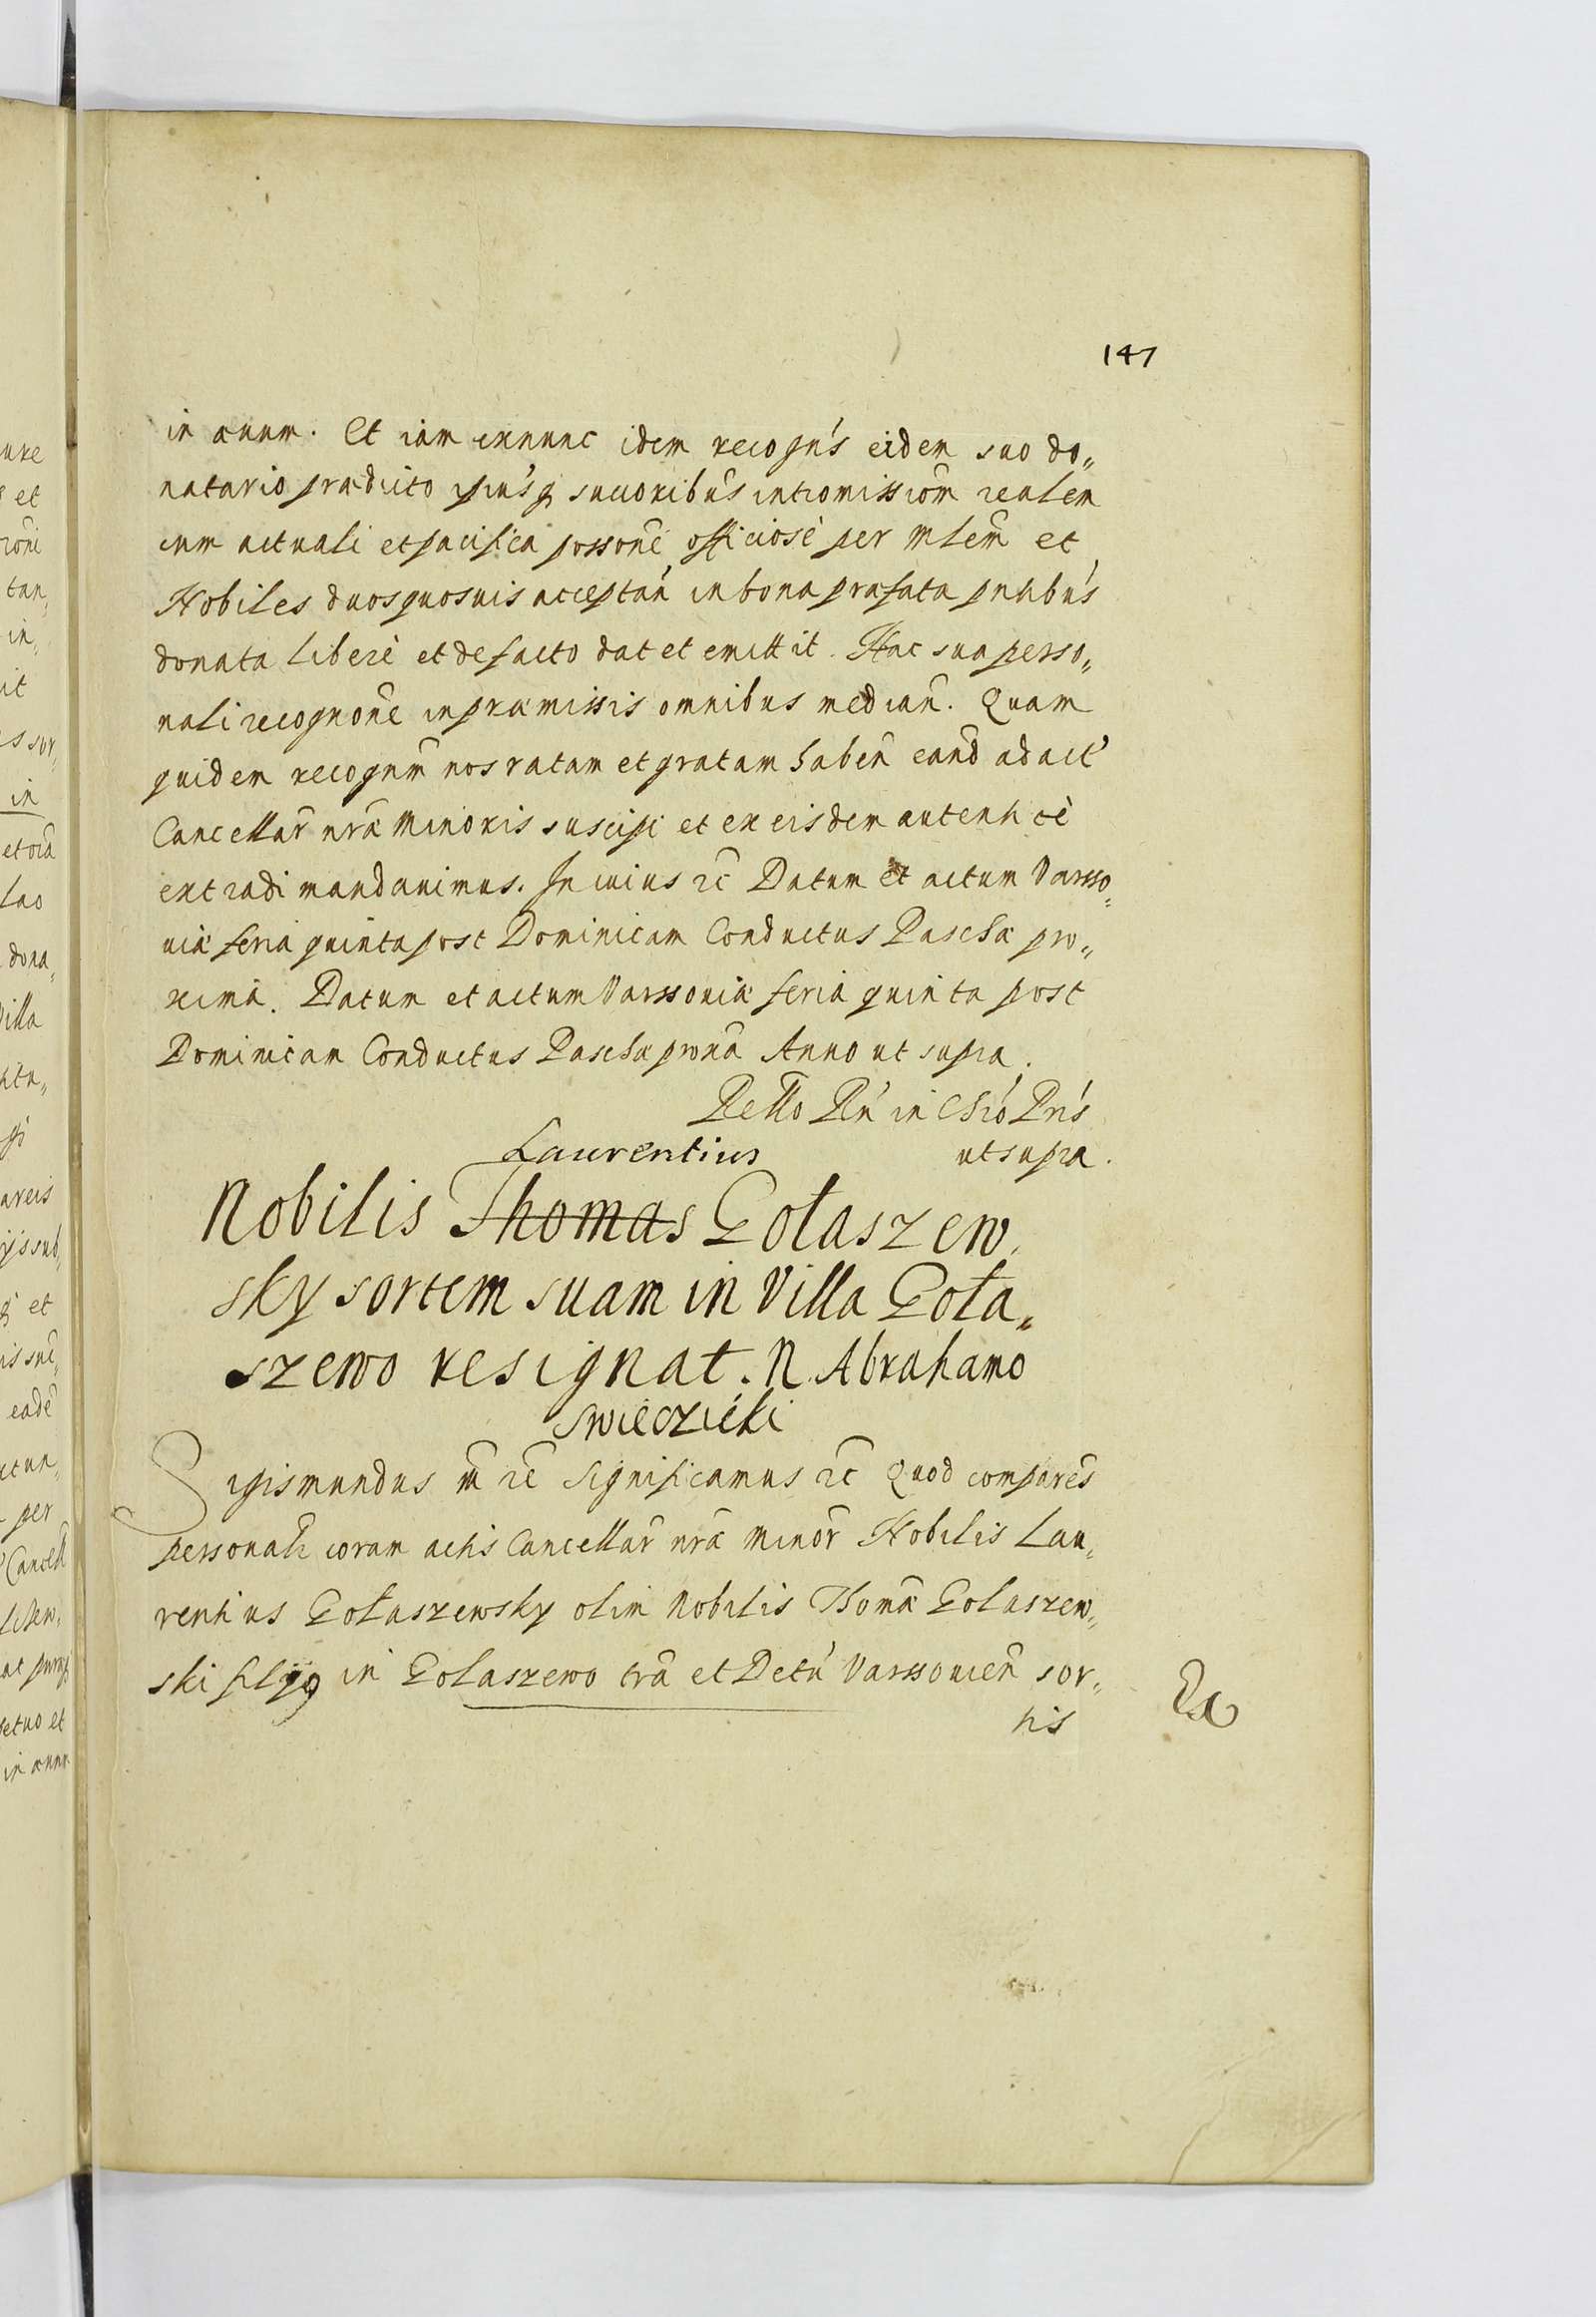 147
in æuum. Et iam exnunc idem recogn's eidem suo do„
natario prædicto ipius'q suctoribus intromissiom realem
cum actuali et pacifica possone officiosè per Mlem et
Nobiles duos quosuis acceptan in bona præfata pntibus
donata liberè et de facto dat et emittit. Hac sua perso„
nali recognone in præmissis omnibus median. Quam
quidem recognm nos ratam et gratam haben eand ad act'
Cancellar nræ Minoris suscipi et ex eisdem autenticè
extradi mandauimus. In cuius rc Datum et actum Varsso„
uiæ feria quinta post Dominicam Conductus Paschæ pro„
xima. Datum et actum Varssouiæ feria quinta post
Dominicam Conductus Paschæ proxa Anno ut supra.
Rello Rn' in Chró Pris
ut supra.
Laurentius
Nobilis Thomas Gołaszew
sky sortem suam in Villa Goła„
szewo resignat. N. Abrahamo
Swieczicki
Sigismundus m rc Significamus rc Quod compares
personalr coram actis Cancellar nræ minor Nobilis Lau„
rentius Gołaszewsky olim Nobilis Thomæ Golaszew„
ski filius in Golaszewo tra et Dctu Varssouien sor„
tis
ure
et
zoni
tan„
in„
it
s sor„
in
et oia
lao
dona„
Villa
areis
ijs sub„
et
eade
per
Cancell
et
in æuum